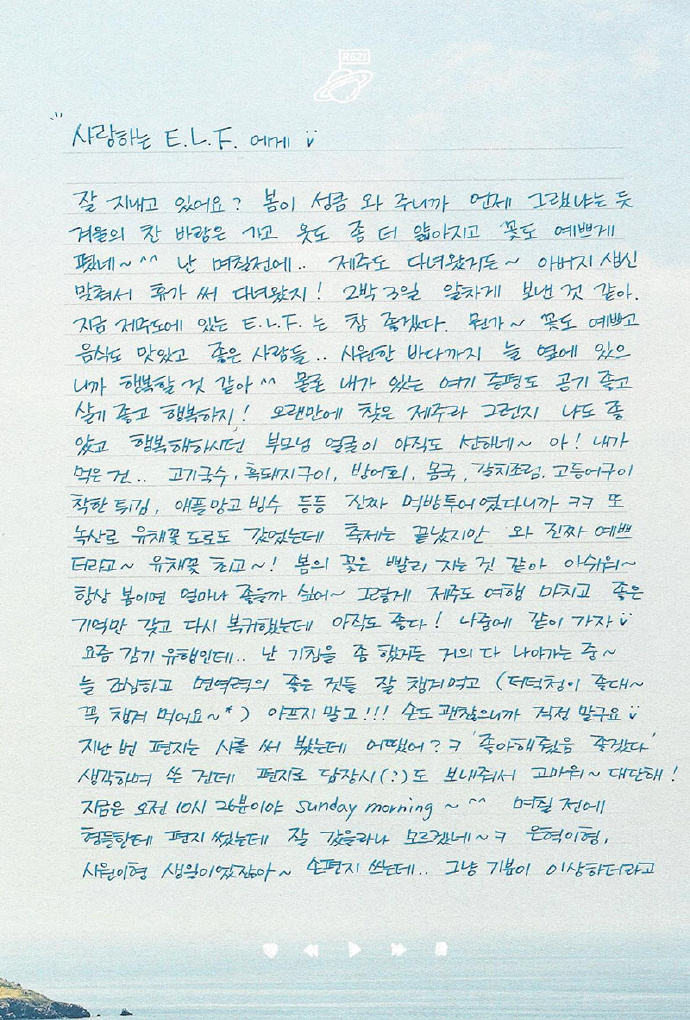 R521
사랑하는 E.L.F. 에게
잘 지내고 있어요? 봄이 성큼 와 주니까 언제 그랬냐는 듯
겨울의 찬 바람은 가고 옷도 좀 더 얇아지고 꽃도 예쁘게
폈네~^^ 난 며칠전에.. 제주도 다녀왔거든~ 아버지 생신
맞춰서 휴가 써 다녀왔지! 2박 3일 알차게 보낸 것 같아.
지금 제주도에 있는 E.L.F.는 참 좋겠다. 뭔가~ 꽃도 예쁘고
음식도 맛있고 좋은 사람들.. 시원한 바다까지 늘 옆에 있으
니까 행복할 것 같아^^ 물론 내가 있는 여기 증평도 공기 좋고
살기 좋고 행복하지! 오랜만에 찾은 제주라 그런지 나도 좋
았고 행복해하시던 부모님 얼굴이 아직도 선하네~ 아! 내가
먹은 건.. 고기국수, 흑돼지구이, 방어회, 몸국, 갈치조림, 고등어구이
착한 튀김, 애플망고 빙수 등등 진짜 먹방투어였다니까 ㅋㅋ 또
녹산로 유채꽃 도로도 갔었는데 축제는 끝났지만 와 진짜 예쁘
더라고~ 유채꽃 최고~! 봄의 꽃은 빨리 지는 것 같아 아쉬워~
항상 봄이면 얼마나 좋을까 싶어~ 그렇게 제주도 여행 마치고 좋은
기억만 갖고 다시 복귀했는데 아직도 좋다! 나중에 같이 가자
요즘 감기 유행인데.. 난 기침을 좀 했거든 거의 다 나아가는 중~
늘 조심하고 면역력의 좋은 것들 잘 챙겨먹고 (더덕청이 좋대~
꼭 챙겨 먹어요~*) 아프지 말고!!! 손도 괜찮으니까 걱정 말구요
지난 번 편지는 시를 써 봤는데 어땠어?ㅋ '좋아해줬음 좋겠다'
생각하며 쓴 건데 편지로 답장시(?)도 보내줘서 고마워~ 대단해!
지금은 오전 10시 26분이야 sunday morning ~ ^^ 며칠 전에
형들한테 편지 썼는데 잘 갔을라나 모르겠네~ㅋ 은혁이형,
시원이형 생일이었잖아~ 손편지 쓰는데.. 그냥 기분이 이상하더라고